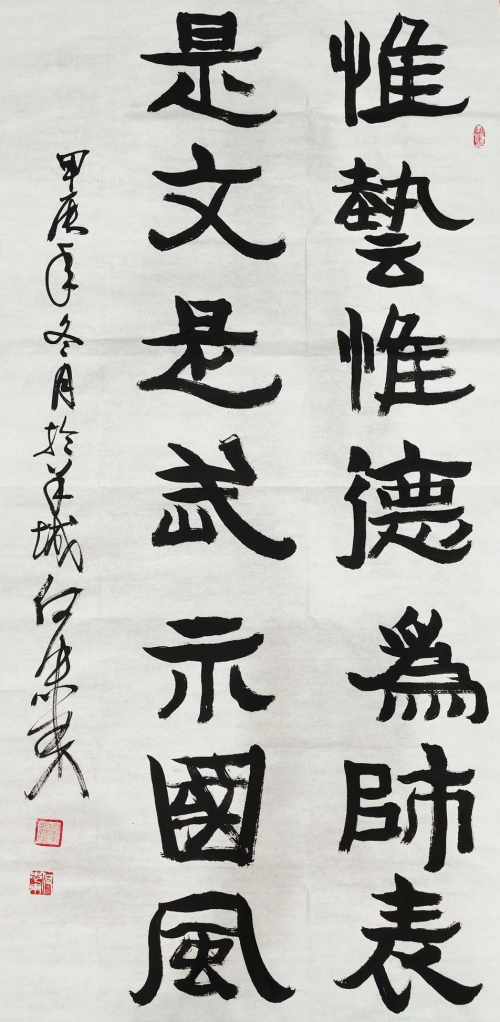 惟藝惟德為師表
是文是武示國風
甲辰年冬月於羊城何